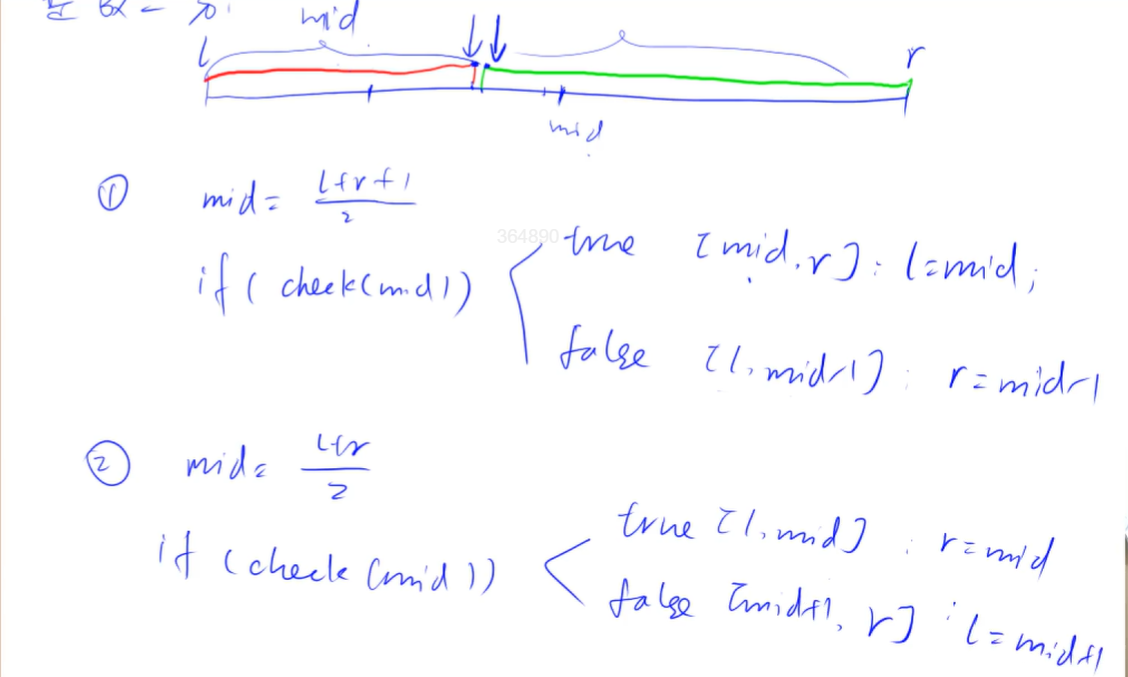 mid
l
r
mid
① mid = (l+r+1)/2
364890
if ( check(mid)) true [mid, r] : l=mid;
false [l, mid-1] : r=mid-1
② mid = (l+r)/2
if (check (mid)) true [l, mid] : r=mid
false [mid+1, r] : l=mid+1